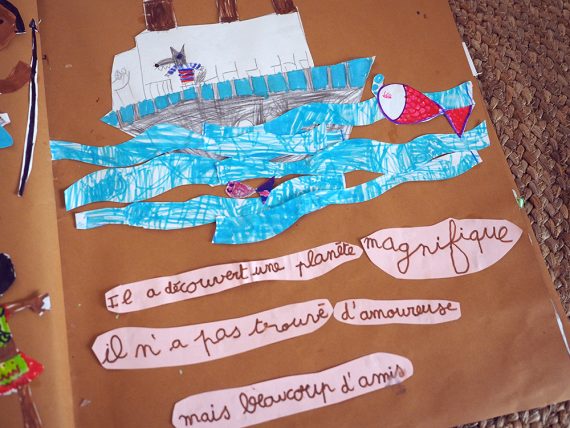 Il a découvert une planète magnifique
il n'a pas trouvé d'amoureuse
mais beaucoup d'amis